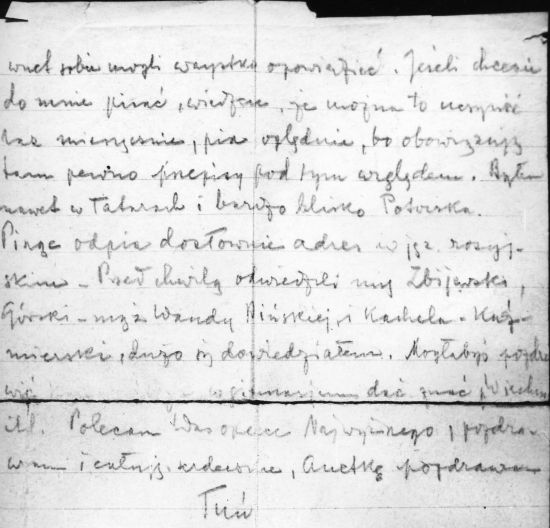 wnet sobie mogli wszystko opowiedzieć. Jeżeli chcecie
do mnie pisać, wiedzcie, że można to uczynić
raz miesięcznie, oględnie, bo obowiązują
tam pewno przepisy pod tym względem. Byłem
nawet w Tatarach i bardzo blisko Potocka.
Pisząc odpis dosłownie adres w jęz. rosyj-
skim – Przed chwilą odwiedzili my Zbijewski,
Górski – mąż Wandy Mińskiej, i Kachela – Kaź-
mierski, dużo się dowiedziałem. Mogłabyś pozdro
wić w gimnazjum dać znać
itd. Polecam Was opiece Najwyższego, pozdra-
wiam i całuję serdecznie, Anetkę pozdrawiam
Tuń